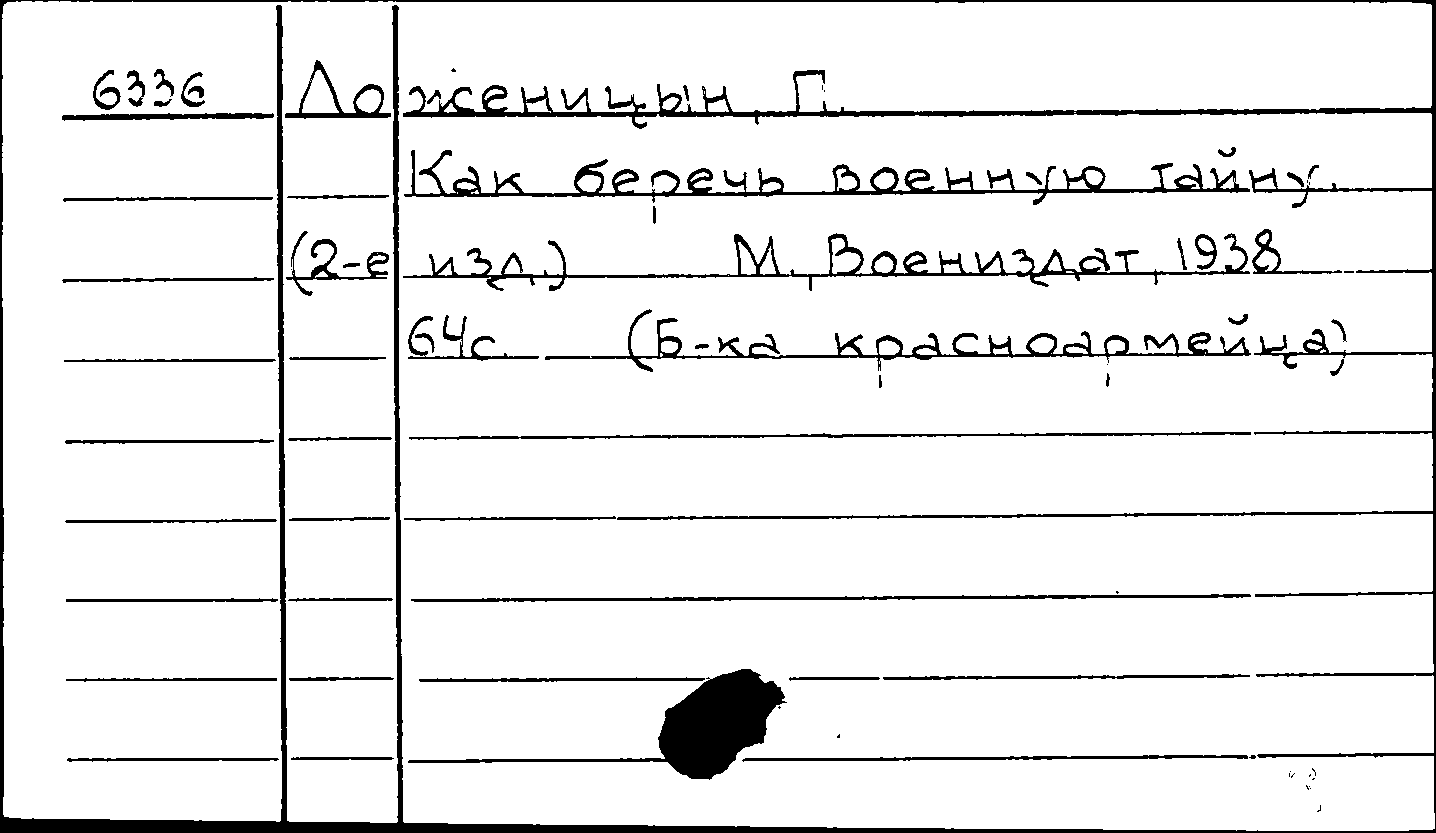 6336 Ложеницын, П.
Как беречь военную тайну.
(2-е изд.) М., Воениздат, 1938
64с. (Б-ка красноармейца)